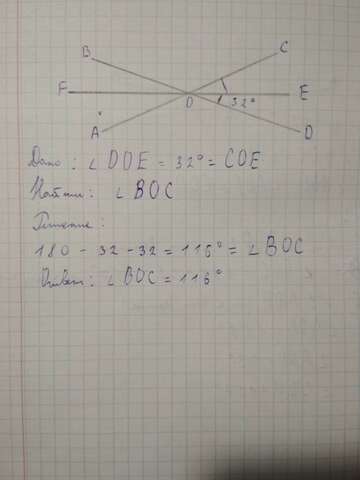 B C
F O 32° E
A D
Дано: ∠DOE = 32° = COE
Найти: ∠BOC
Решение:
180 - 32 - 32 = 116° = ∠BOC
Ответ: ∠BOC = 116°